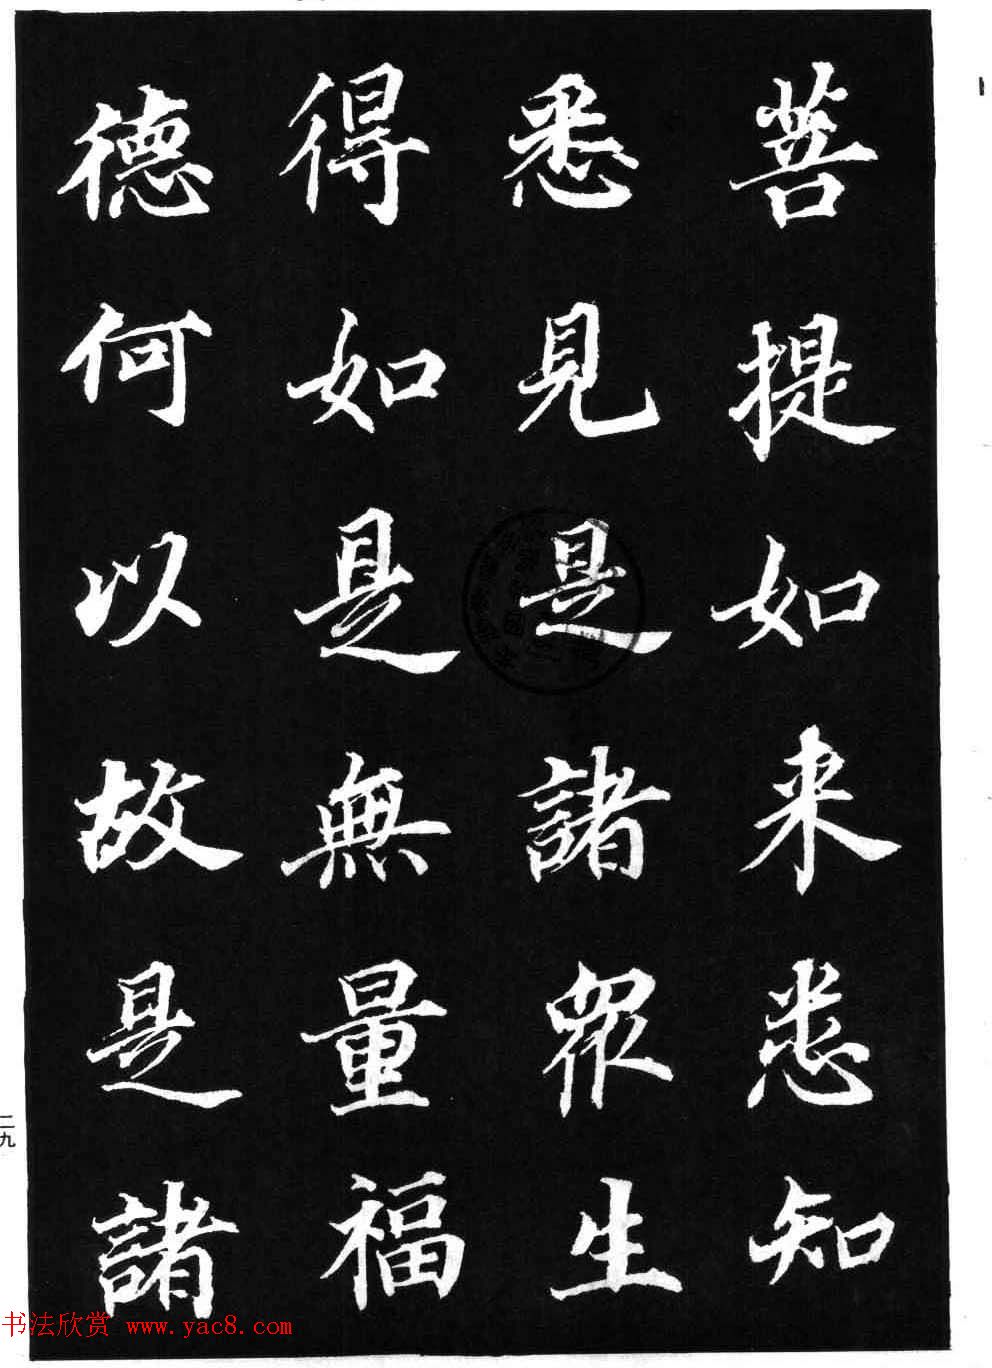 菩提如来悉知
悉見是諸衆生
得如是無量福
德何以故是諸
二九
书法欣赏 www.yac8.com